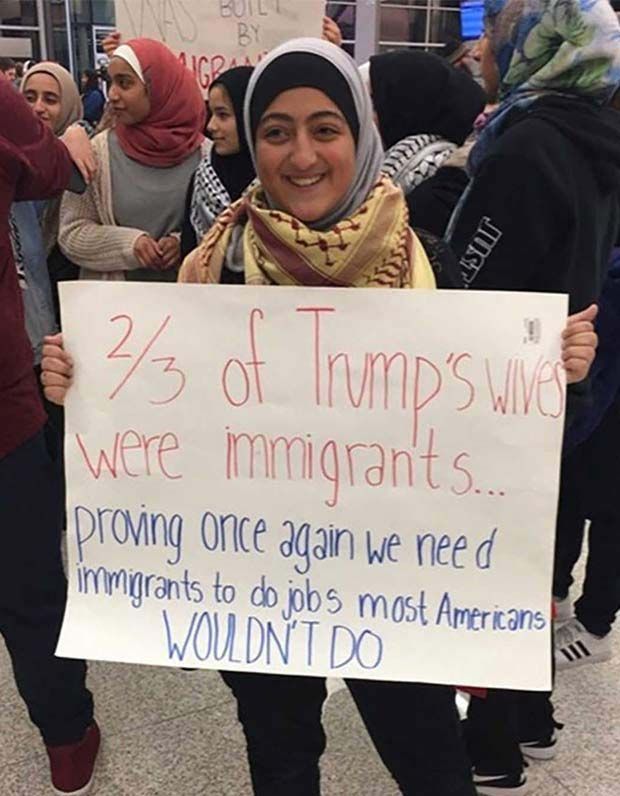 WAS BUILT
BY
IMMIGRAN
2/3 of Trump's wives
were immigrants...
proving once again we need
immigrants to do jobs most Americans
WOULDN'T DO
JUST